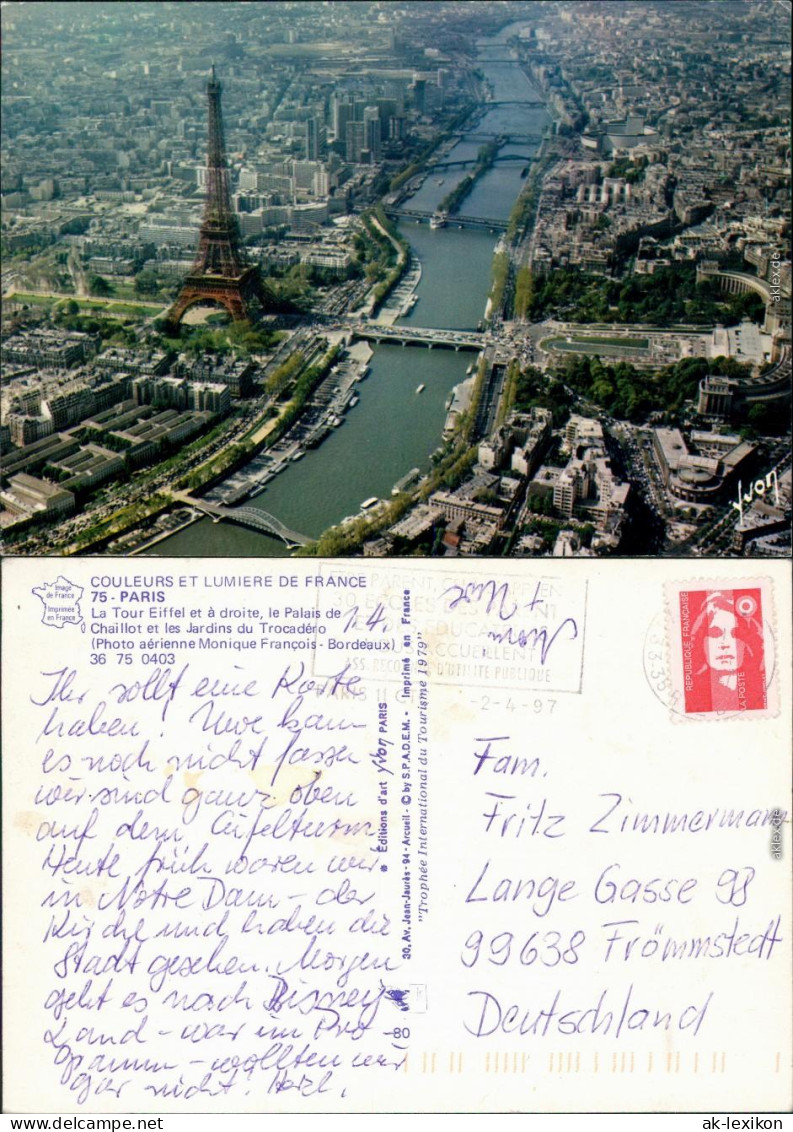 yvon
COULEURS ET LUMIERE DE FRANCE
75 - PARIS
La Tour Eiffel et à droite, le Palais de
Chaillot et les Jardins du Trocadéro
(Photo aérienne Monique François - Bordeaux)
36 75 0403
Image
de France
Imprimée
en France
1.4.
Ihr sollt eine Karte
haben! Uwe kann
es noch nicht fassen
wir sind ganz oben
auf dem Eifelturm
Heute früh waren wir
in Notre Dam - der
Kirche und haben die
Stadt gesehen. Morgen
geht es nach Disney
Land - war im Pro
gramm - wollten wir
gar nicht! Herzl.
+ Uwe
-80
Editions d'art yvon PARIS
30, Av. Jean-Jaurès - 94 - Arcueil - © by S.P.A.D.E.M. - Imprimé en France
"Trophée International du Tourisme 1979"
ACCUEILLENT
D'UTILITE PUBLIQUE
PARIS II
-2-4-97
REPUBLIQUE FRANÇAISE
LA POSTE
Fam.
Fritz Zimmermann
Lange Gasse 98
99638 Frömmstedt
Deutschland
aklex.de
aklex.de
ak-lexikon